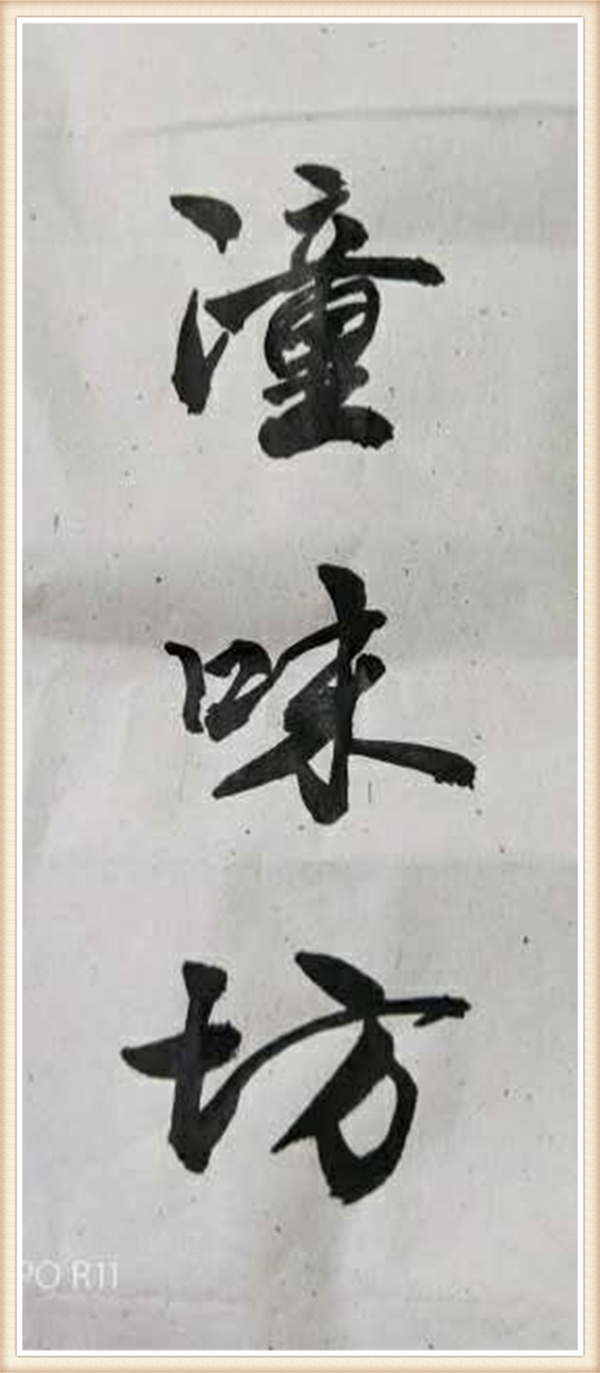 潼味坊
PO R11